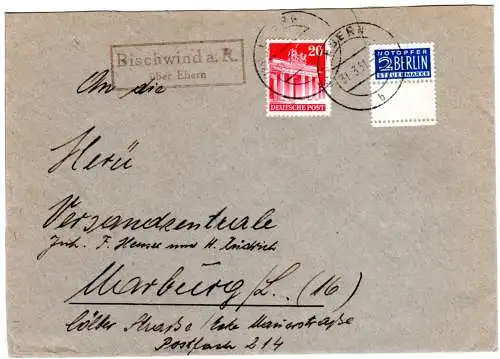 Bischwind a. R.
über Ebern
EBERN
31.3.51
b
20
DEUTSCHE POST
NOTOPFER
2 BERLIN
STEUERMARKE
An die
Versandzentrale
Inh. F. und H.
Marburg/L. (16)
Cölber Straße/Ecke Mauerstraße
Postfach 214